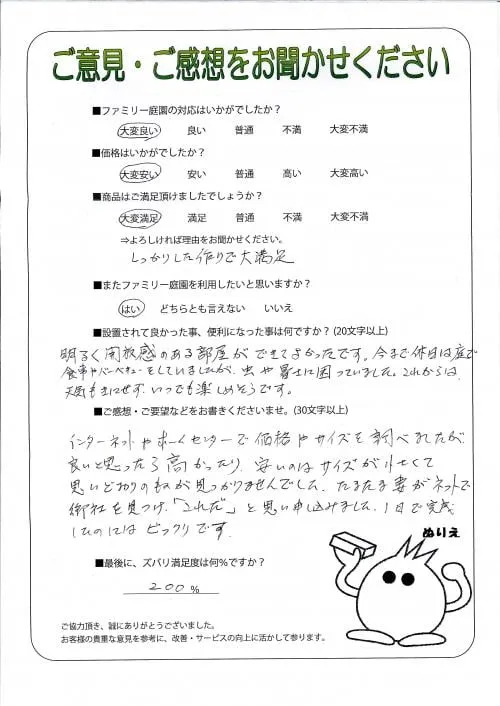 ご意見・ご感想をお聞かせください
■ファミリー庭園の対応はいかがでしたか？
大変良い 良い 普通 不満 大変不満
■価格はいかがでしたか？
大変安い 安い 普通 高い 大変高い
■商品はご満足頂けましたでしょうか？
大変満足 満足 普通 不満 大変不満
⇒よろしければ理由をお聞かせください。
しっかりした作りで大満足
■またファミリー庭園を利用したいと思いますか？
はい どちらとも言えない いいえ
■設置されて良かった事、便利になった事は何ですか？(20文字以上)
明るく開放感のある部屋ができてよかったです。今まで休日は庭で
食事やバーベキューをしていましたが、虫や暑さに困っていました。これからは、
天気も気にせず、いつでも楽しめそうです。
■ご感想・ご要望などをお書きくださいませ。(30文字以上)
インターネットやホームセンターで価格やサイズを調べましたが
良いと思ったら高かったり、安いのはサイズが小さくて
思いどおりのものが見つかりませんでした。たまたま妻がネットで
御社を見つけ、「これだ」と思い申し込みました。1日で完成
したのにはビックリです。
■最後に、ズバリ満足度は何%ですか？
200%
ぬりえ
ご協力頂き、誠にありがとうございました。
お客様の貴重な意見を参考に、改善・サービスの向上に活かして参ります。